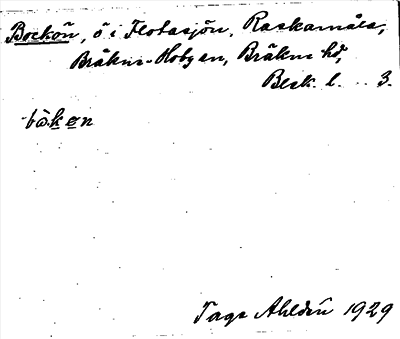 Bockön, ö i Flotasjön, Raskamåla,
Bräkne-Hoby sn, Bräkne hd,
Blek. l. . . 3.
bòkøn
Tage Ahldén 1929